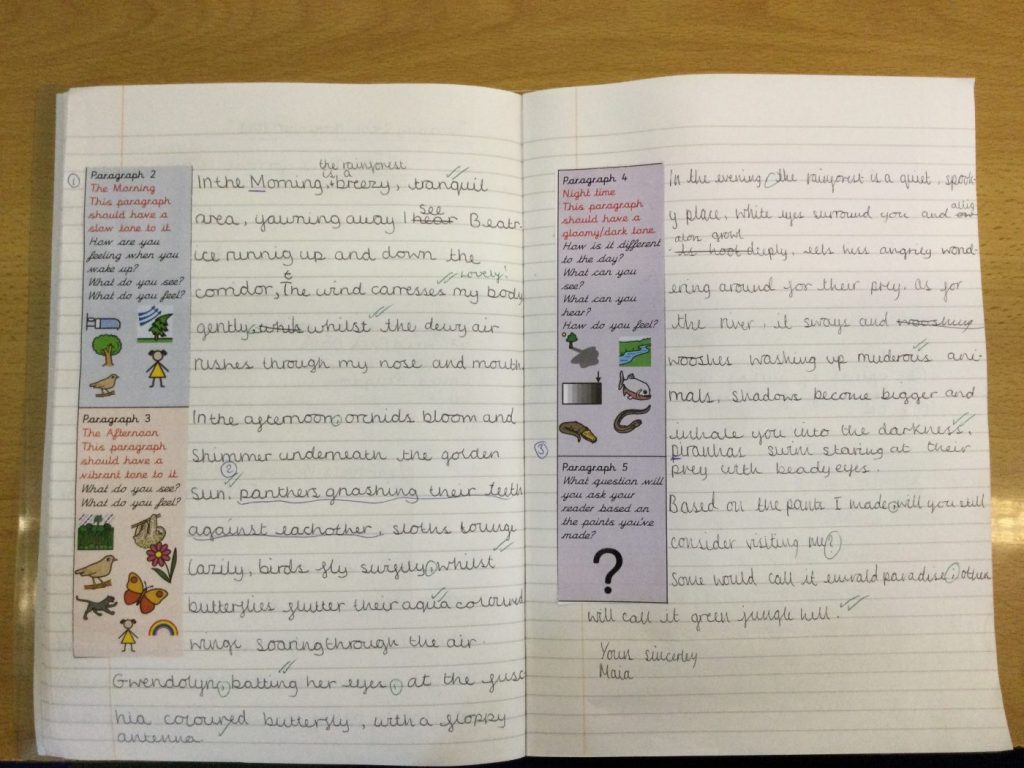 1
Paragraph 2
The Morning
This paragraph
should have a
slow tone to it
How are you
feeling when you
wake up?
What do you see?
What do you feel?
the rainforest
is a
In the Morning, breezy, tranquil
see
area, yawning away I hear Beatr-
ice runnig up and down the
lovely!
t
corridor, The wind carresses my body
gently whilst the dewy air
rushes through my nose and mouth.
Paragraph 3
The Afternoon
This paragraph
should have a
vibrant tone to it
What do you see?
What do you feel?
In the afternoon, orchids bloom and
shimmer underneath the golden
2
sun, panthers gnashing their teeth
against eachother, sloths lounge
lazily, birds fly swiftly, whilst
butterflies flutter their aqua coloured
wings soaring through the air.
Gwendolyn, batting her eyes, at the fusc
hia coloured butterfly, with a floppy
antenna.
Paragraph 4
Night time
This paragraph
should have a
gloomy/dark tone
How is it different
to the day?
What can you
see?
What can you
hear?
How do you feel?
In the evening, the rainforest is a quiet, spook-
y place, White eyes surround you and
allig
ators growl
deeply, eels hiss angrily wond-
ering around for their prey. As for
the river, it sways and wooshing
wooshes washing up muderous ani-
mals, shadows become bigger and
inhale you into the darkness,
3
piranhas swim staring at their
prey with beady eyes.
Paragraph 5
What question will
you ask your
reader based on
the points you've
made?
?
Based on the points I made, will you still
consider visiting me?
Some would call it emrald paradise; other
will call it green jungle hell.
Yours sincerley
Maia